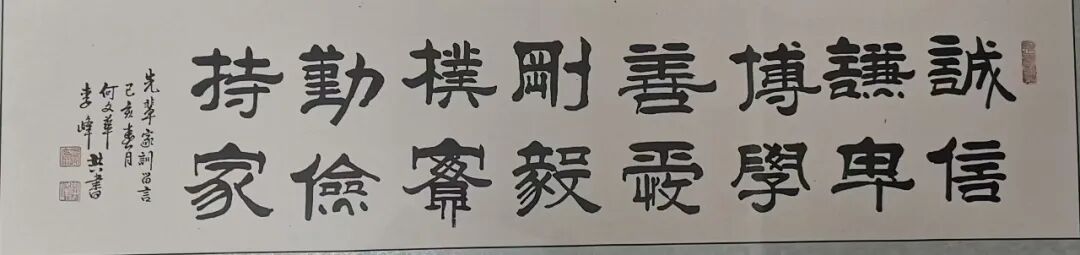 誠信
謙卑
博學
善
剛毅
樸
勤儉
持家
先輩家訓留言
己亥春月
何文華
李峰 共書